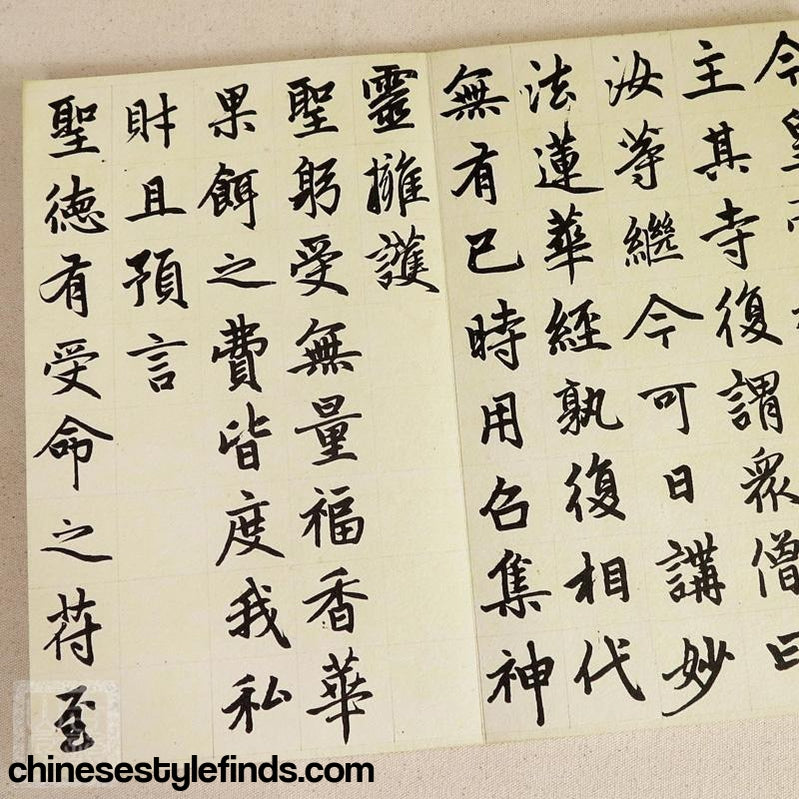 今皇
主其寺復謂衆僧曰
汝等繼今可日講妙
法蓮華經孰復相代
無有已時用召集神
靈擁護
聖躬受無量福香華
果餌之費皆度我私
財且預言
聖德有受命之符至
chinesestylefinds.com